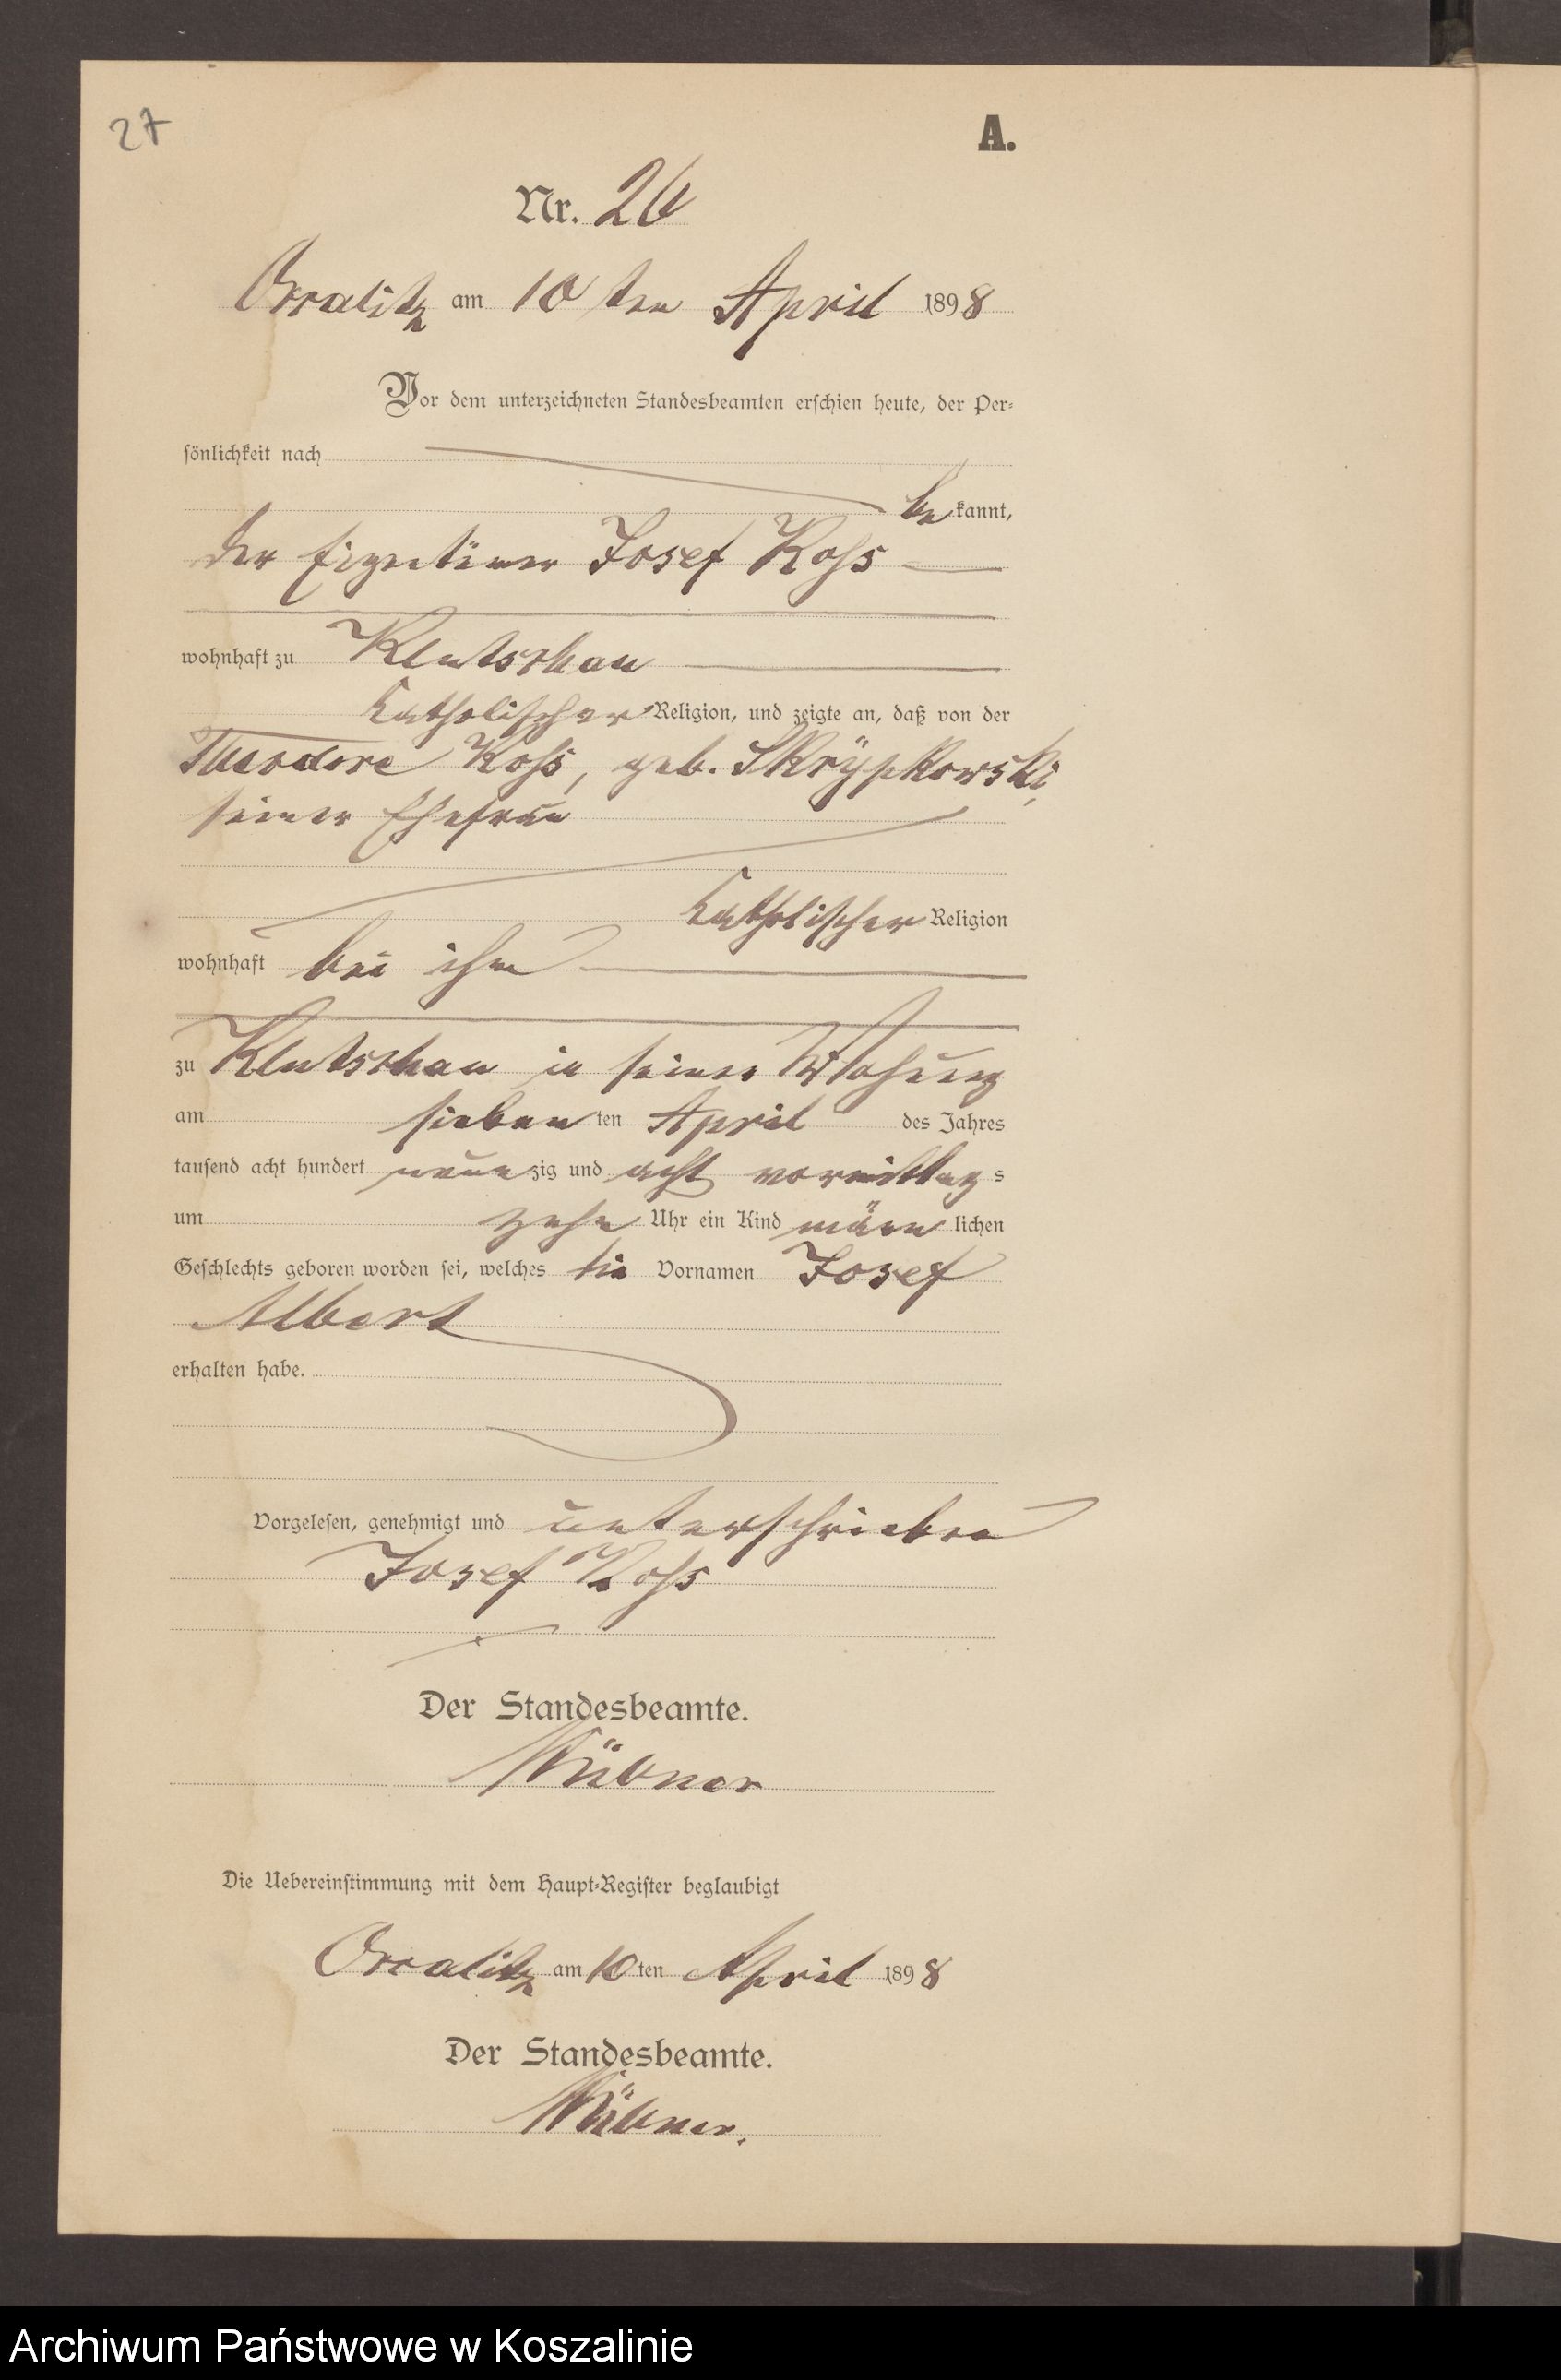 27
A.
Nr. 26
Ossalitz am 10 ten April 1898
Vor dem unterzeichneten Standesbeamten erschien heute, der Per-
sönlichkeit nach
be kannt,
der Eigentümer Josef Koss
wohnhaft zu Klutschau
katholischer Religion, und zeigte an, daß von der
Theodore Koss, geb. Skrÿpkowski,
seiner Ehefrau
katholischer Religion
wohnhaft bei ihm
zu Klutschau in seiner Wohnung
am sieben ten April des Jahres
tausend acht hundert neun zig und acht vormittag s
um zehn Uhr ein Kind männ lichen
Geschlechts geboren worden sei, welches die Vornamen Josef
Albert
erhalten habe.
Vorgelesen, genehmigt und unterschrieben
Josef Koss
Der Standesbeamte.
Die Uebereinstimmung mit dem Haupt-Register beglaubigt
Ossalitz am 10 ten April 1898
Der Standesbeamte.
Archiwum Państwowe w Koszalinie